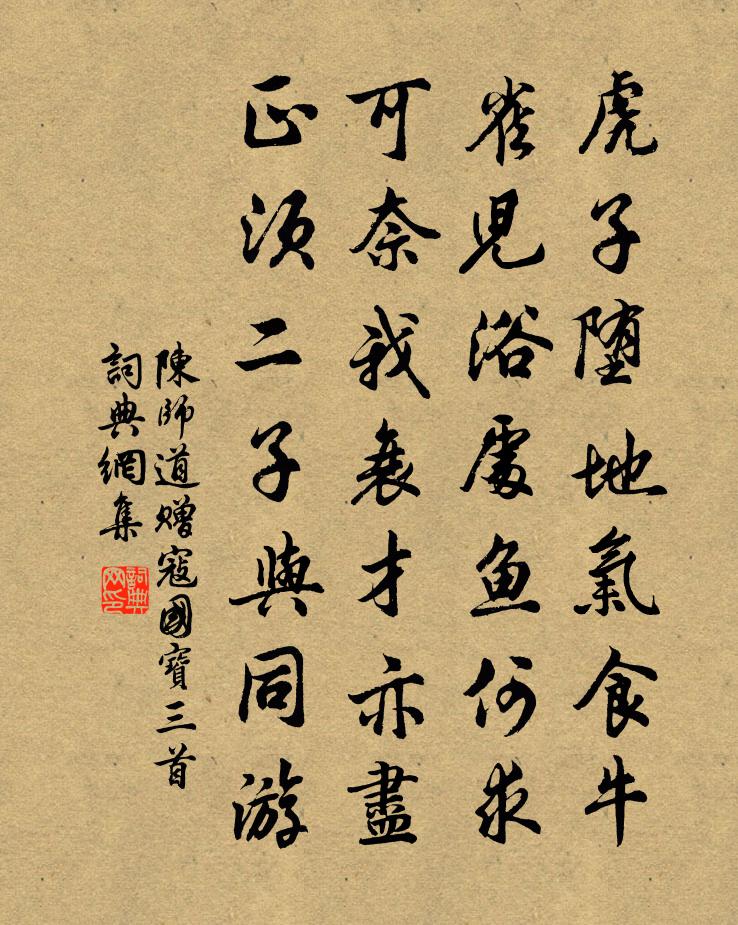 虎子堕地氣食牛
雀兒浴處魚何求
可奈我衰才亦盡
正須二子與同游
陳師道贈寇國寶三首
詞典網集
詞典网印